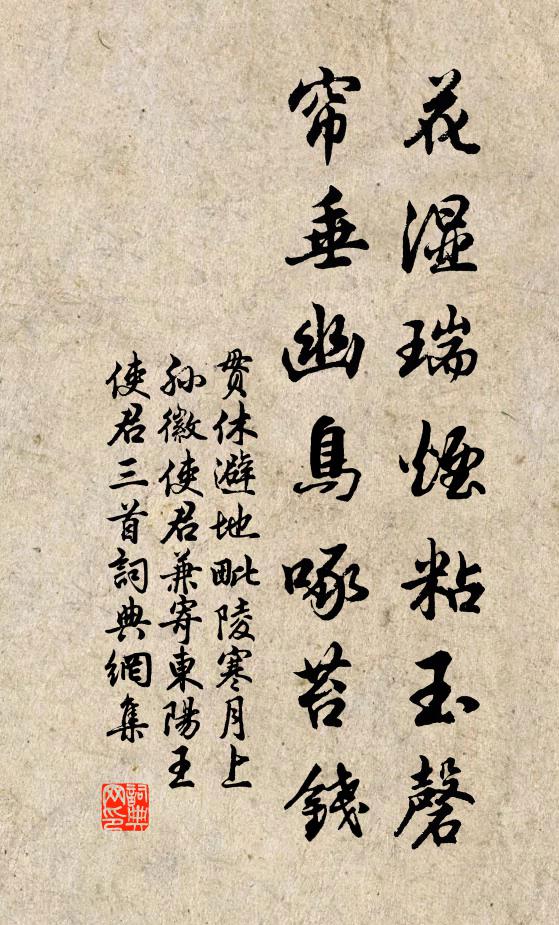 花湿瑞煙粘玉磬
帘垂幽鳥啄苔錢
贯休避地毗陵寒月上
孙徽使君兼寄東陽王
使君三首詞典網集
詞典网印